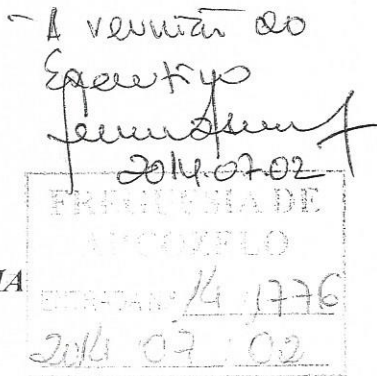 - A reunião do
Executivo
2014.07.02
FREGUESIA DE
ARCOZELO
IA
ENTRADA Nº 14 1776
2014 07 02